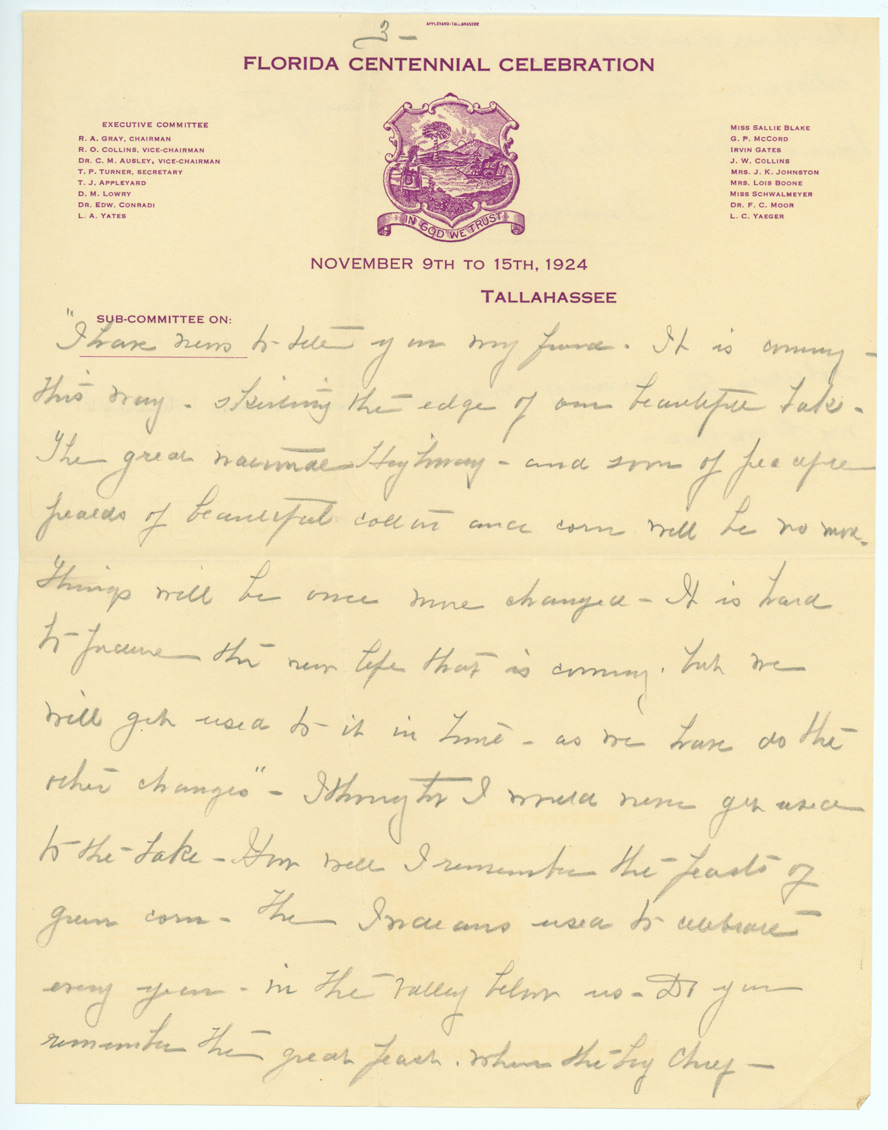 APPLEYARD-TALLAHASSEE
3 -
FLORIDA CENTENNIAL CELEBRATION
EXECUTIVE COMMITTEE
R. A. GRAY, CHAIRMAN
R. O. COLLINS, VICE-CHAIRMAN
DR. C. M. AUSLEY, VICE-CHAIRMAN
T. P. TURNER, SECRETARY
T. J. APPLEYARD
D. M. LOWRY
DR. EDW. CONRADI
L. A. YATES
MISS SALLIE BLAKE
G. P. MCCORD
IRVIN GATES
J. W. COLLINS
MRS. J. K. JOHNSTON
MRS. LOIS BOONE
MISS SCHWALMEYER
DR. F. C. MOOR
L. C. YAEGER
IN GOD WE TRUST
NOVEMBER 9TH TO 15TH, 1924
TALLAHASSEE
SUB-COMMITTEE ON:
"I have news to tell you my friend. It is coming -
this way - skirting the edge of our beautiful Lake -
The great national Highway - and soon of peaceful
fields of beautiful cotton and corn will be no more.
Things will be once more changed - It is hard
to the new life that is coming. but we
will get used to it in time - as we have do the
other changes" - I thought I would never get used
to the Lake - How well I remember the feasts of
green corn - the Indians used to celebrate
every year - in the valley below us - Do you
remember the great feast. when the big Chief -